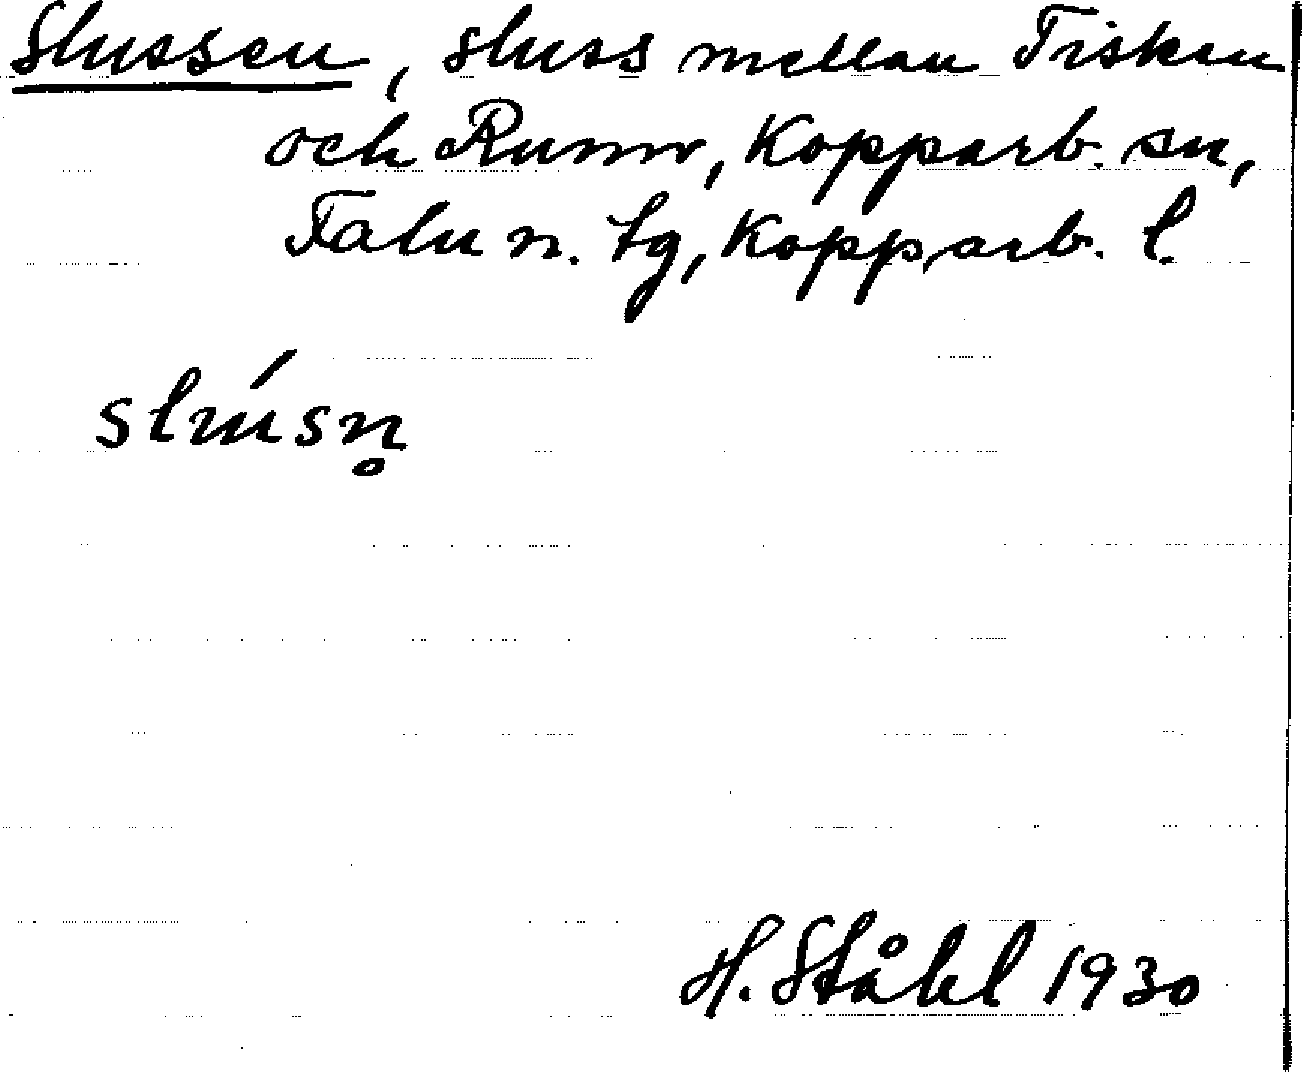 Slussen, sluss mellan Tisken
och Runn, Kopparb. sn,
Falu n. tg, Kopparb. l.
H. Ståhl 1930